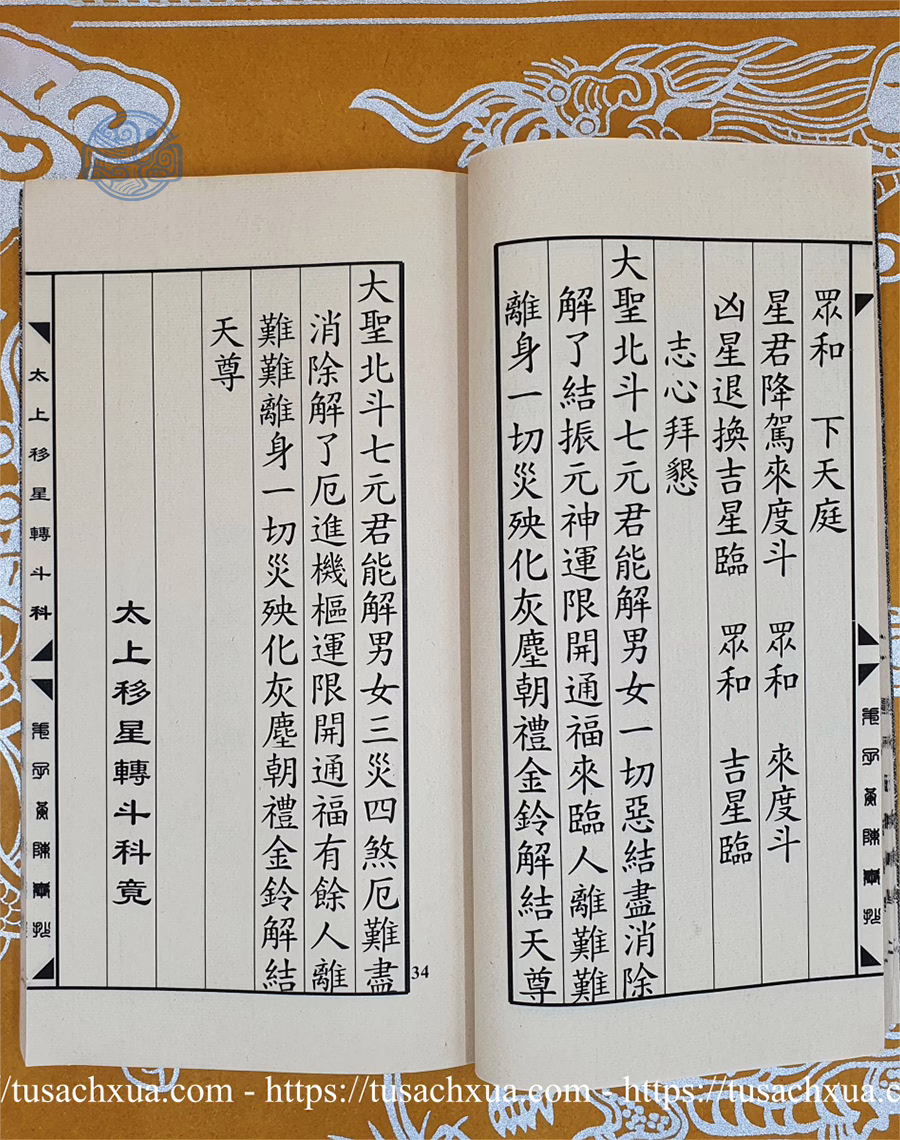 眾和　下天庭
星君降駕來度斗　眾和　來度斗
凶星退換吉星臨　眾和　吉星臨
志心拜懇
大聖北斗七元君能解男女一切惡結盡消除
解了結振元神運限開通福來臨人離難難
離身一切災殃化灰塵朝禮金鈴解結天尊
大聖北斗七元君能解男女三災四煞厄難盡
消除解了厄進機樞運限開通福有餘人離
難難離身一切災殃化灰塵朝禮金鈴解結
天尊
太上移星轉斗科竟
太上移星轉斗科
34
/tusachxua.com - https://tusachxua.com - https://tusachxua.c